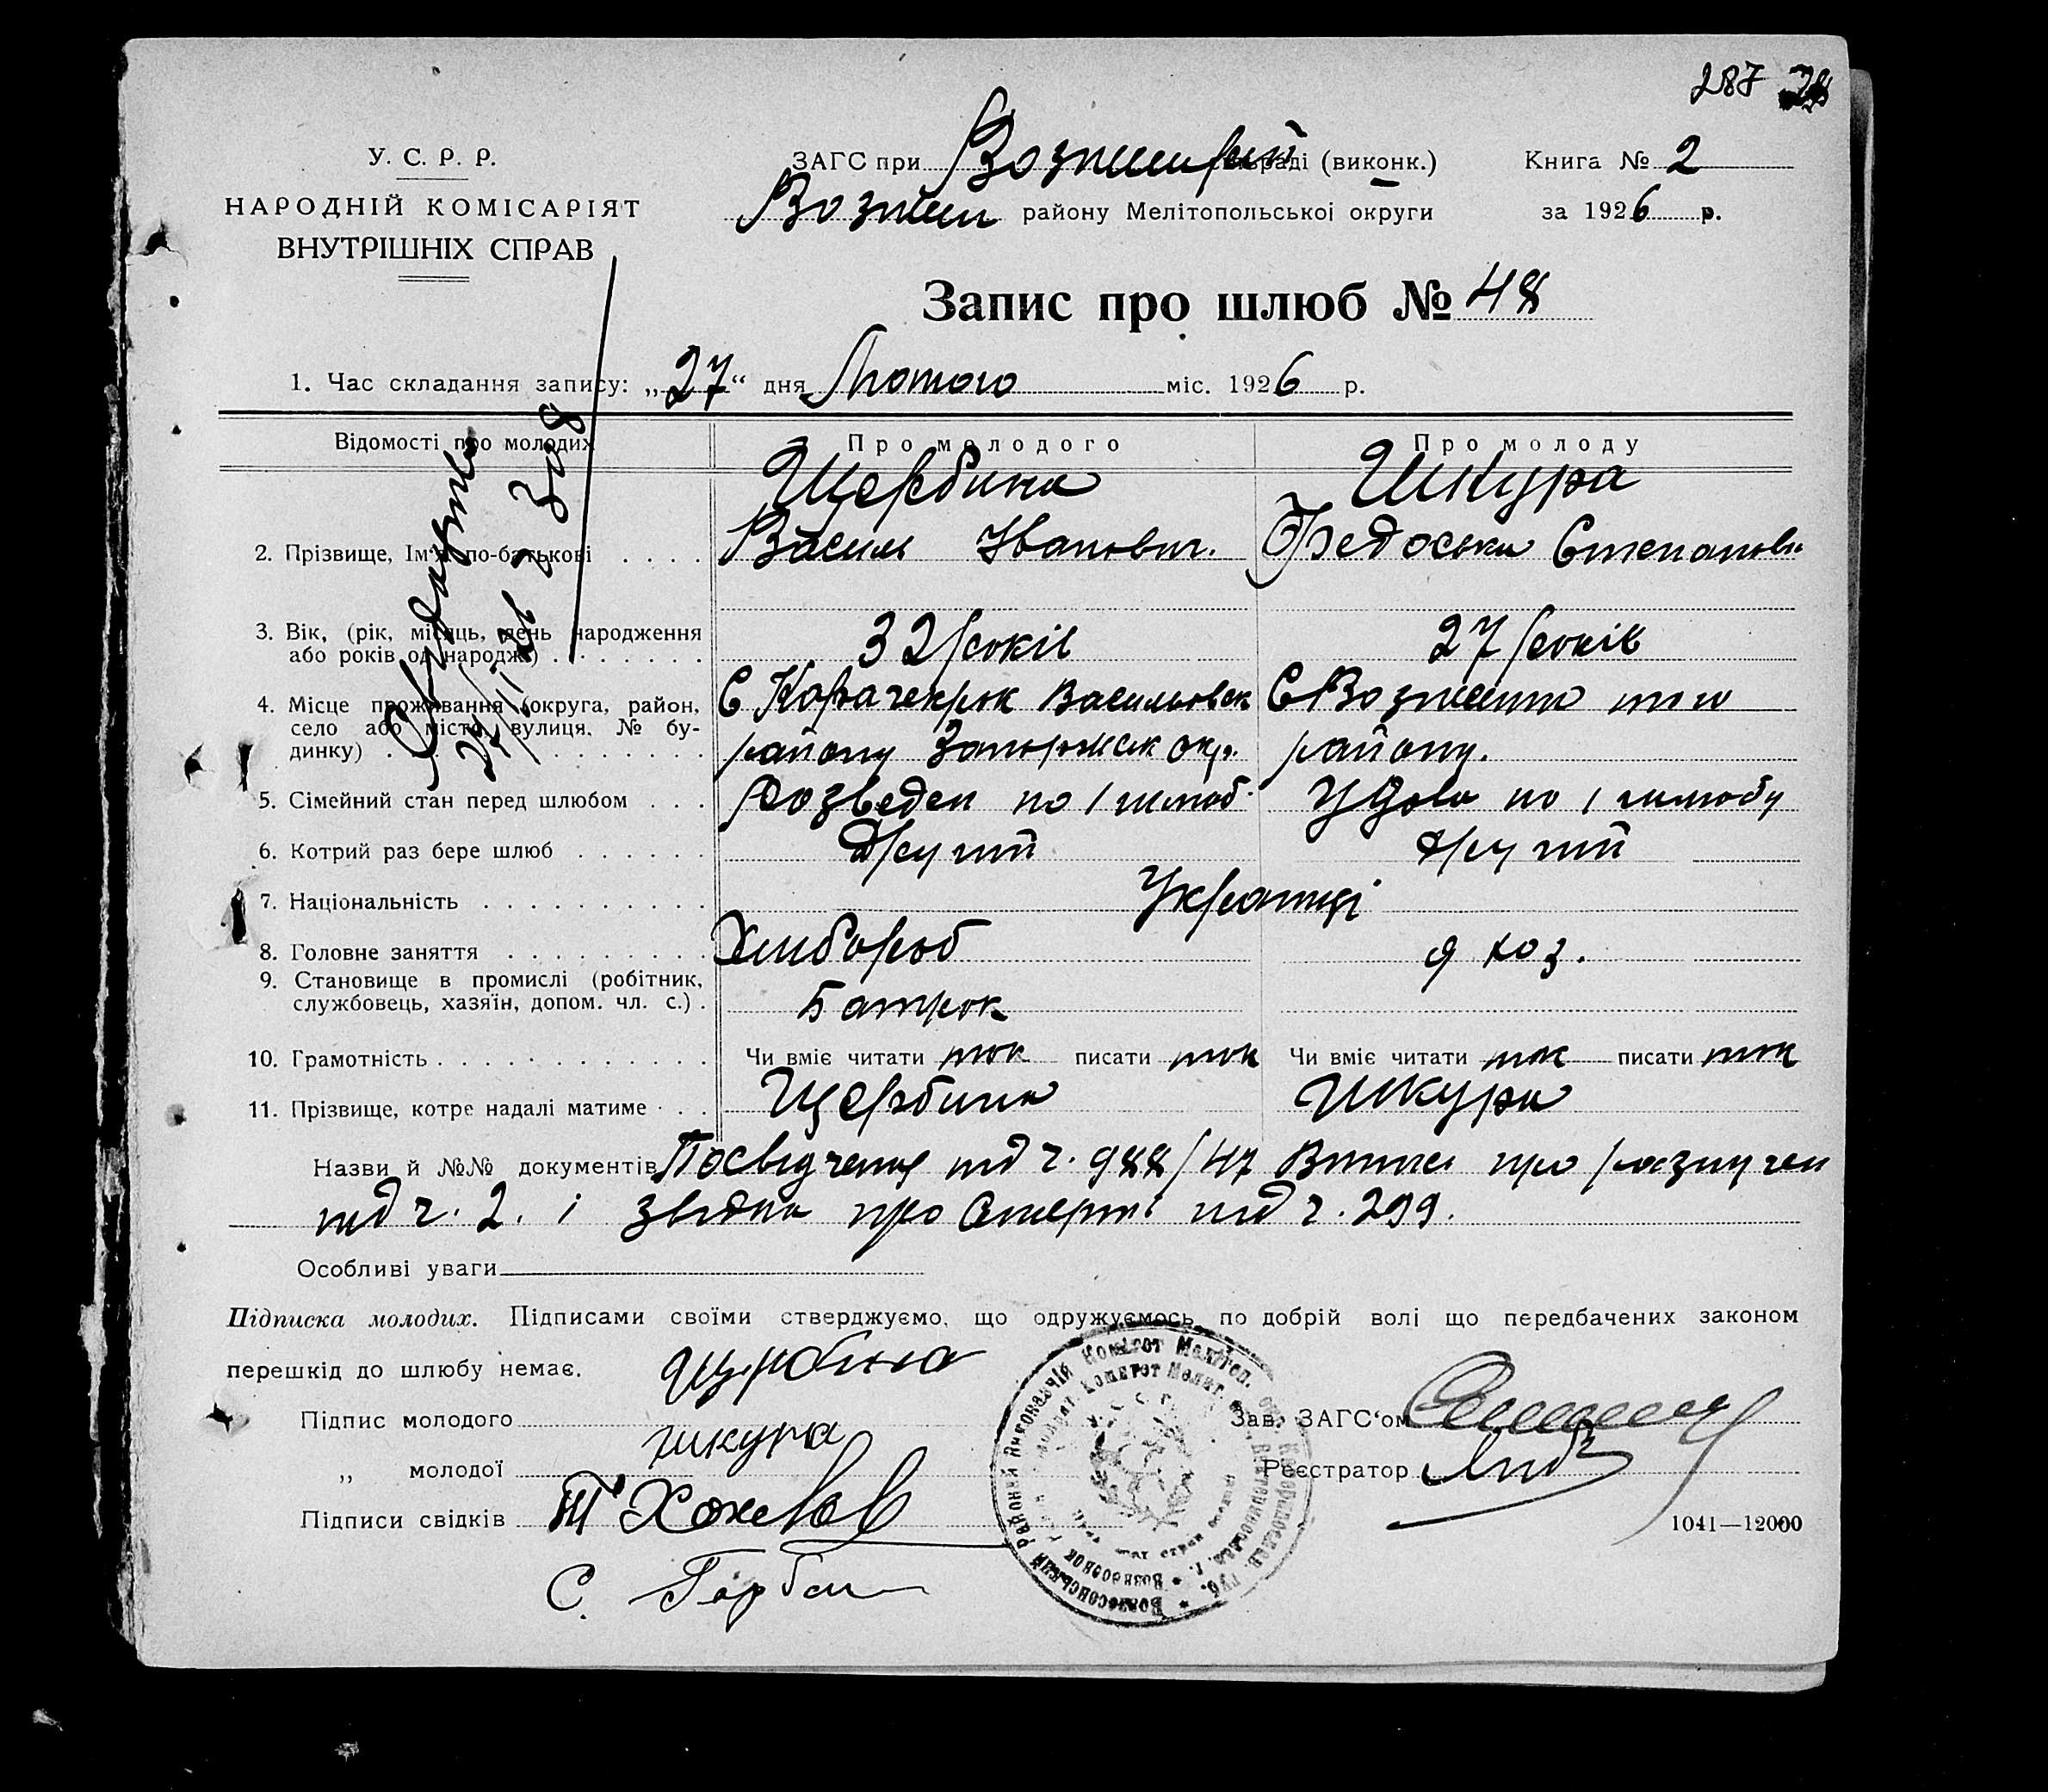 287
У. С. Р. Р.
НАРОДНІЙ КОМІСАРІЯТ
ВНУТРІШНІХ СПРАВ
ЗАГС при раді (виконк.) Книга № 2
Возне району Мелітопольської округи за 1926 р.
Запис про шлюб № 48
1. Час складання запису: „27“ дня Лютого міс. 1926 р.
Відомості про молодих Про молодого Про молоду
Щербина Шкура
2. Прізвище, Ім'я по-батькові . . . . Василь Іванович. Федоська Степановн
3. Вік, (рік, місяць, день народження 32 років 27 років
або років од народж.) . . . . . . .
4. Місце проживання (округа, район, С Карачекрак Васильовск С Вознесенка того
село або місто, вулиця, № бу-
динку) . . . . . . . . . . . . . району Запоржск окр. району.
5. Сімейний стан перед шлюбом . . . розведен по 1 шлюб Удова по 1 шлюбу
6. Котрий раз бере шлюб . . . . . . Другий другий
7. Національність . . . . . . . . . . Українці
8. Головне заняття . . . . . . . . . Хлибороб д хоз.
9. Становище в промислі (робітник,
службовець, хазяїн, допом. чл. с.) . Батрак
10. Грамотність . . . . . . . . . . . . Чи вміє читати так писати так Чи вміє читати так писати так
11. Прізвище, котре надалі матиме . . . Щербина Шкура
Назви й №№ документів Посвідчення під ч. 988/47 про
під ч. 2. і звідка про смерть під ч. 299.
Особливі уваги
Підписка молодих. Підписами своїми стверджуємо, що одружуємось по добрій волі що передбачених законом
перешкід до шлюбу немає.
Підпис молодого щербина Зав. ЗАГС'ом
„ молодої шкура Реєстратор
Підписи свідків
С. Горбан
1041—12000